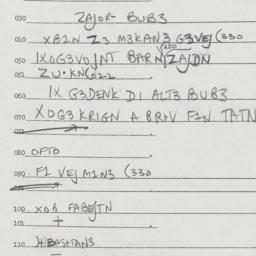 030 ZAJOR- BUB3
040 XB1N Z3 M3KAN3 G3VEJ (330
050 1XOG3VOJNT BARN ZAJDN
051 ZU·KN(022
060 1X G3DENK D1 ALT3 BUB3
070 XOG3 KRIGN A BRIV F1N TATN
080 OFTO
090 F1 VEJM1N3 (330
100 XOB FABEJTN
101 +
110 BASHTAN3